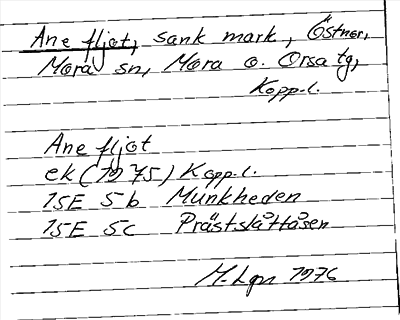 Ane fljot, sank mark, Östnor,
Mora sn, Mora o. Orsa tg,
Kopp.l.
Ane fljot
ek (1975) Kopp.l.
15E 5b Munkheden
15E 5c Prästslåttåsen
M-Lgn 1976